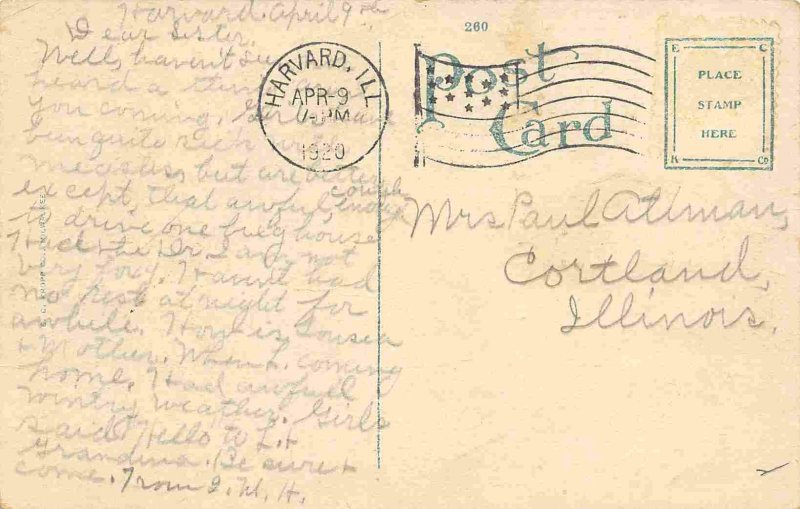 Harvard. April 9th
Dear Sister.
Well, haven't
heard a thing
you coming. Girls have
been quite sick
measles, but are better
except, that awful cough
enough
to drive one bughouse
Had the Dr. I am not
very foxy. Haven't had
no rest at night for
awhile. How is Louisa
+ Mother. When L. coming
home. Had awfull
wintry weather. Girls
said Hello to L. +
Grandma. Be sure +
come. From I. M. H.
260
HARVARD, ILL.
APR-9
PM
1920
Post
Card
E C
PLACE
STAMP
HERE
K Co
Mrs Paul Altman,
Cortland,
Illinois.